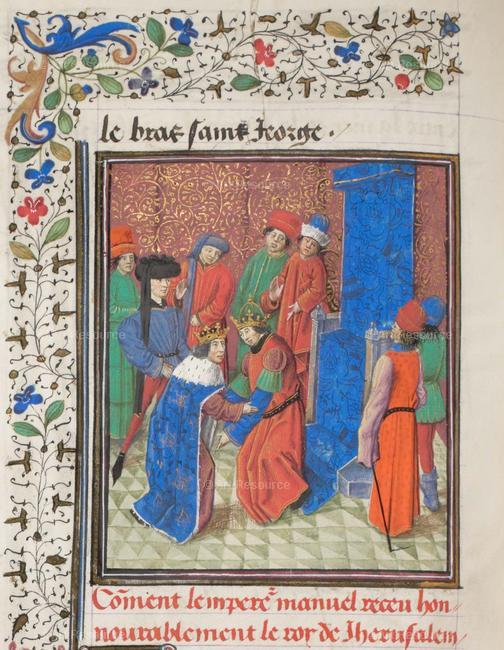 le bras saint Jeorge .
Co͂ment lempere᷑ manuel receu hon/
nourablement le roy de Jherusalem/